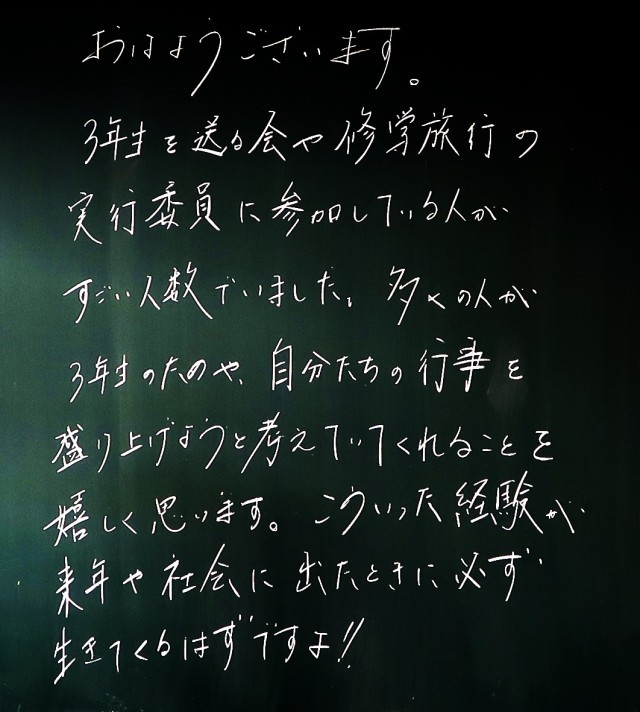 おはようございます。
3年生を送る会や修学旅行の
実行委員に参加している人が
すごい人数でいました。多くの人が
3年生のためや、自分たちの行事を
盛り上げようと考えていてくれることを
嬉しく思います。こういった経験が
来年や社会に出たときに必ず
生きてくるはずですよ!!